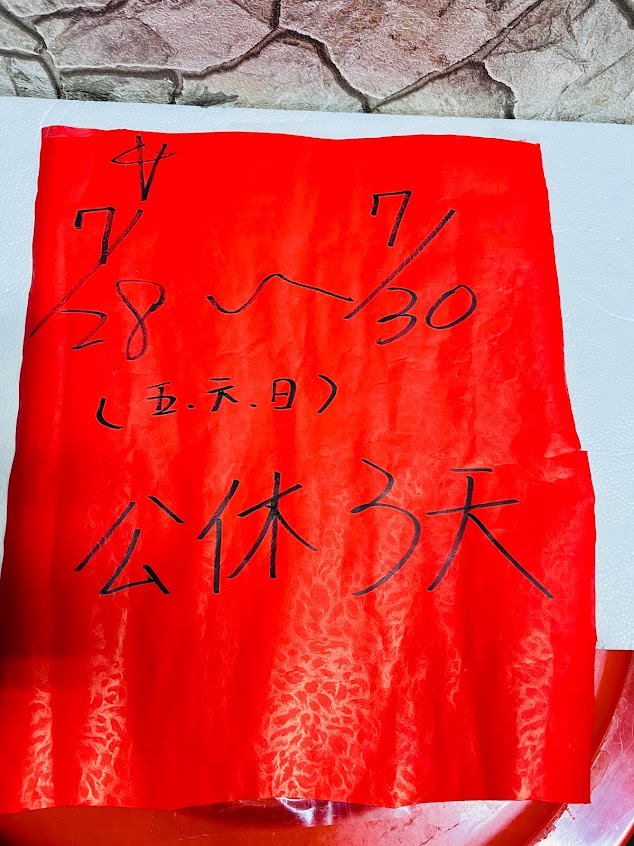 7/28～7/30
(五.六.日)
公休3天